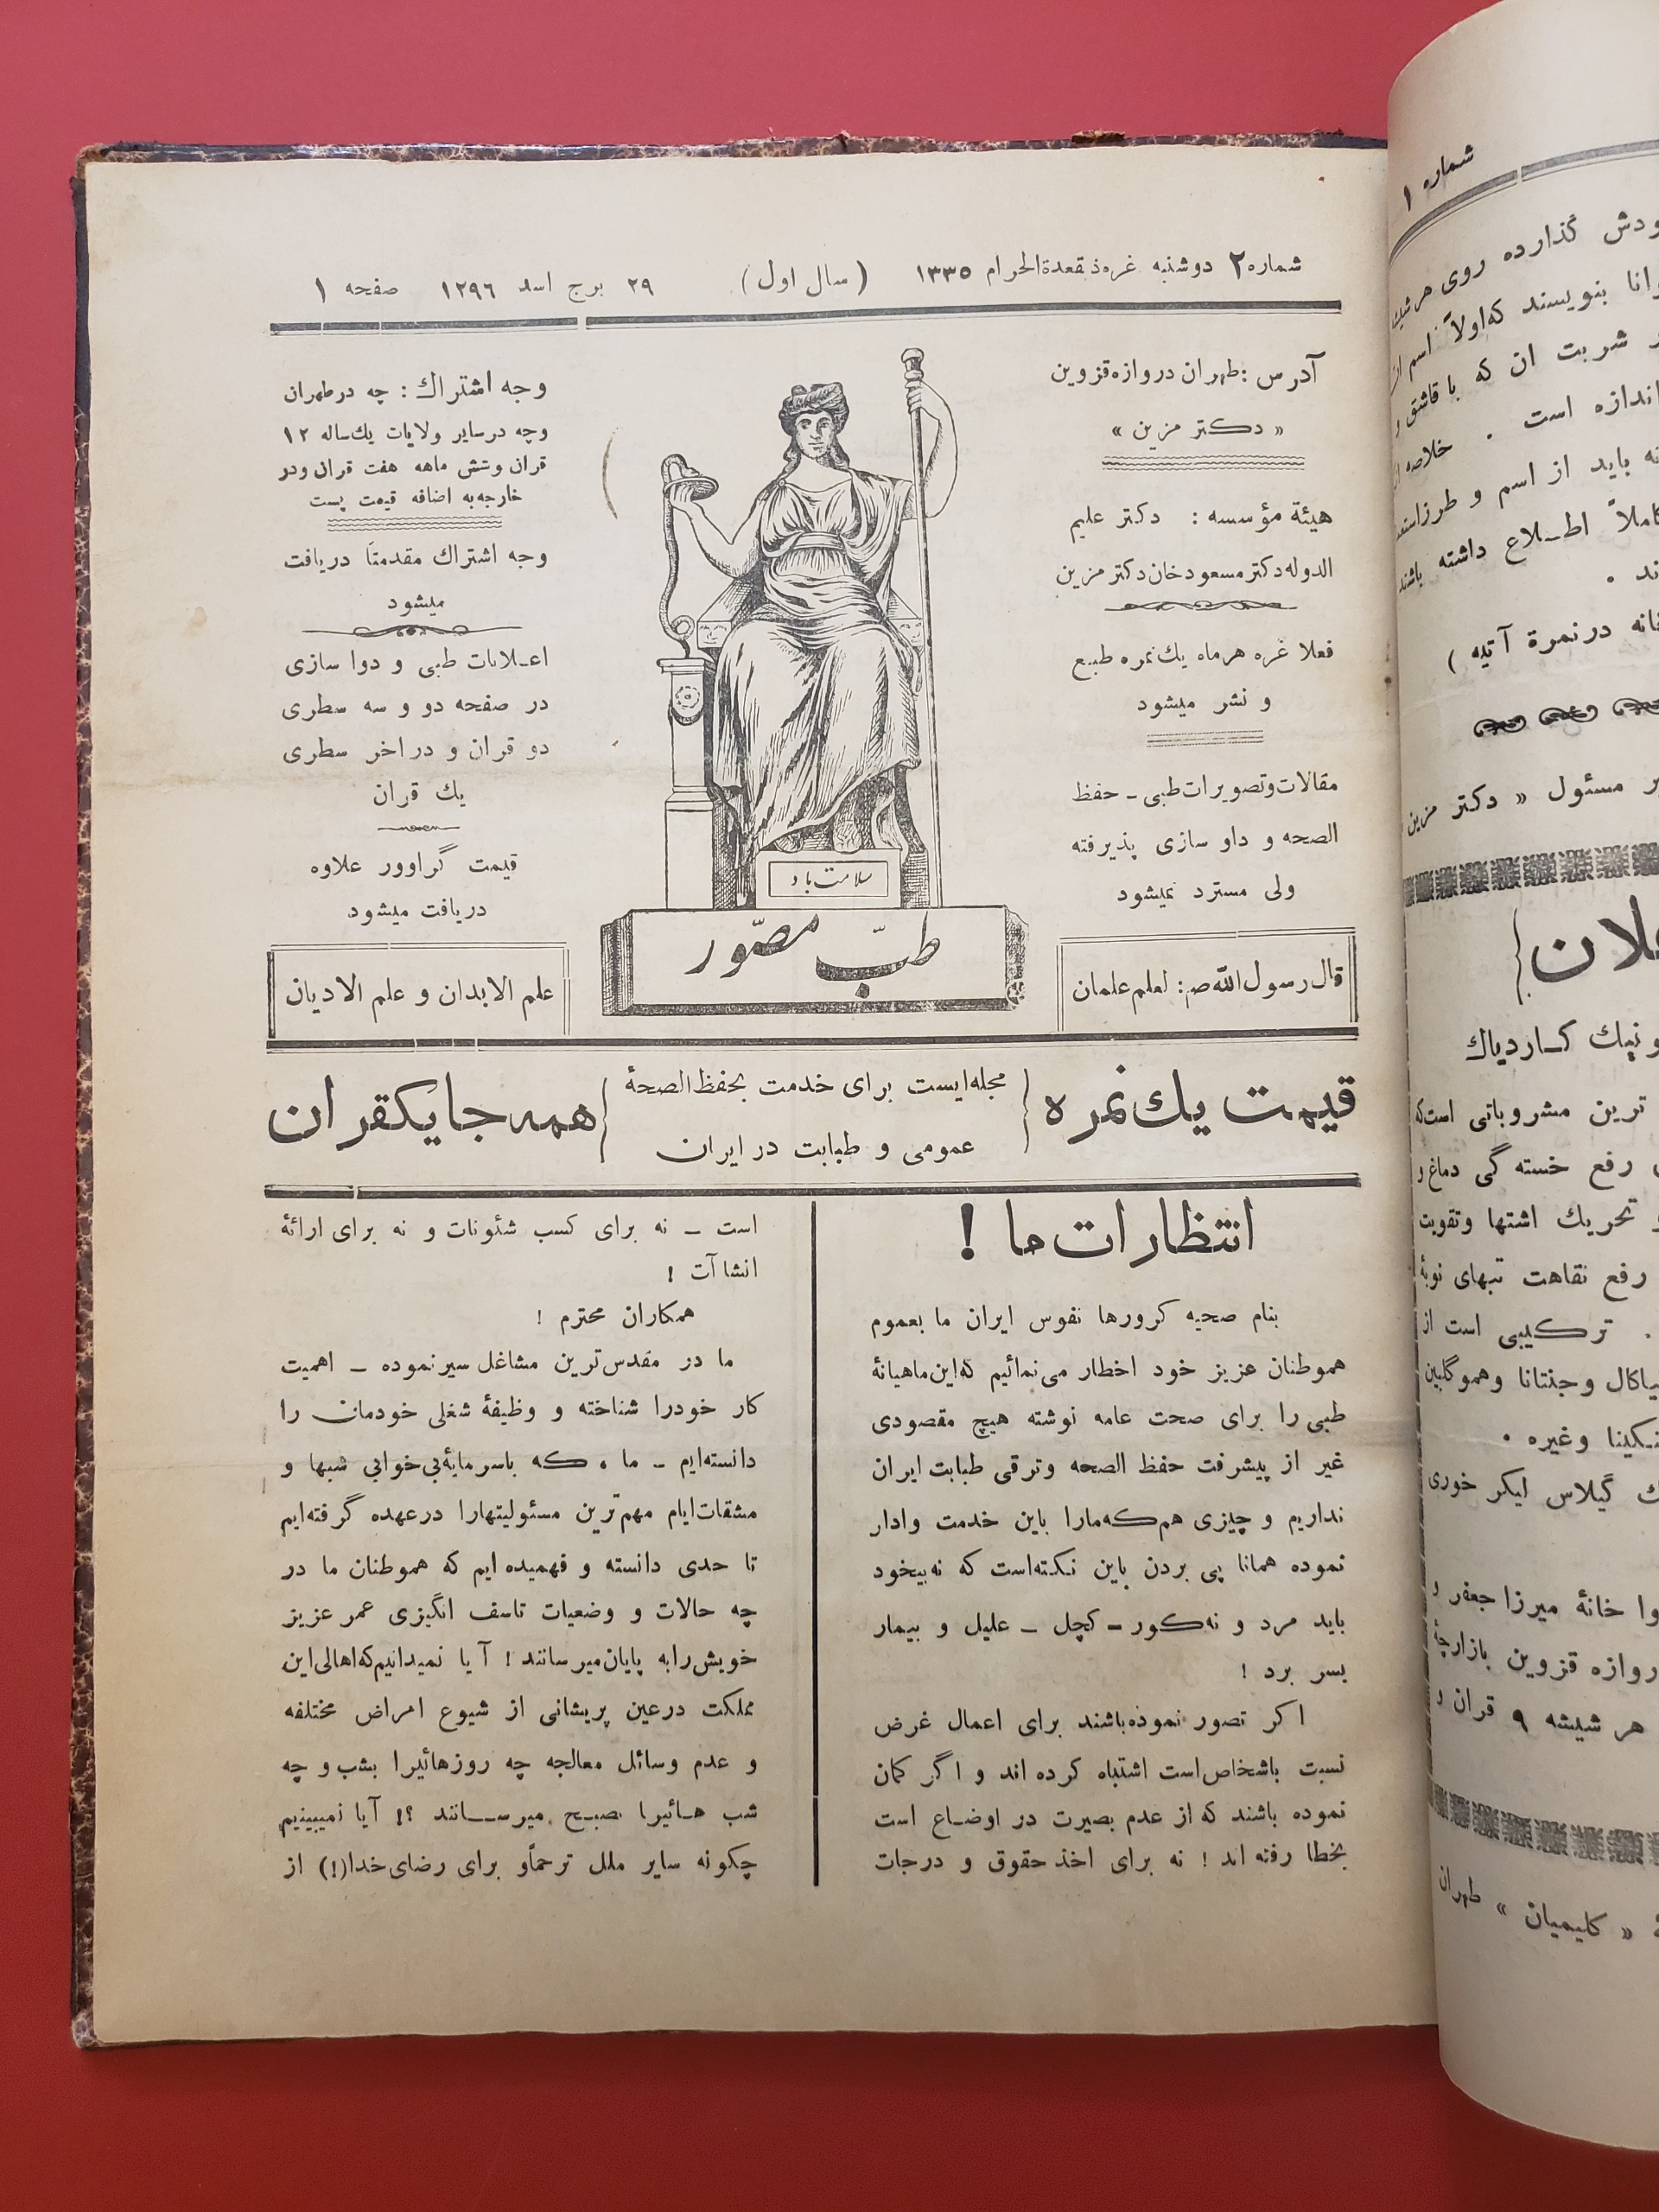 شماره ۲ دوشنبه غره ذیقعدةالحرام ۱۳۳۵ (سال اول) ۲۹ برج اسد ۱۲۹۶ صفحه ۱
آدرس : طهران دروازه قزوین
« دکتر مزین »
هیئة مؤسسه : دکتر علیم
الدوله دکتر مسعود خان دکتر مزین
فعلا غره هرماه یك نمره طبع
و نشر میشود
مقالات و تصویرات طبی ـ حفظ
الصحه و داو سازی پذیرفته
ولی مسترد نمیشود
قال رسول الله ص : لعلم علمان
سلامت باد
طبّ مصوّر
وجه اشتراك : چه در طهران
وچه در سایر ولایات یك ساله ۱۲
قران و شش ماهه هفت قران و در
خارجه به اضافه قیمت پست
وجه اشتراك مقدمتاً دریافت
میشود
اعلانات طبی و دوا سازی
در صفحه دو و سه سطری
دو قران و در اخر سطری
یك قران
قیمت گراوور علاوه
دریافت میشود
علم الابدان و علم الادیان
قیمت یك نمره
مجله ایست برای خدمت بحفظ الصحهٔ
عمومی و طبابت در ایران
همه جا یكقران
انتظارات ما !
بنام صحیه کرورها نفوس ایران ما بعموم
هموطنان عزیز خود اخطار می نمائیم که این ماهیانهٔ
طبی را برای صحت عامه نوشته هیچ مقصودی
غیر از پیشرفت حفظ الصحه و ترقی طبابت ایران
نداریم و چیزی هم که ما را باین خدمت وادار
نموده همانا پی بردن باین نکته است که نه بیخود
باید مرد و نه کور ـ کچل ـ علیل و بیمار
بسر برد !
اکر تصور نموده باشند برای اعمال غرض
نسبت باشخاص است اشتباه کرده اند و اگر کمان
نموده باشند که از عدم بصیرت در اوضاع است
بخطا رفته اند ! نه برای اخذ حقوق و درجات
است ـ نه برای کسب شئونات و نه برای ارائهٔ
انشاآت !
همکاران محترم !
ما در مقدس ترین مشاغل سیر نموده ـ اهمیت
کار خود را شناخته و وظیفهٔ شغلی خودمان را
دانسته ایم ـ ما ، که با سرمایهٔ بی خوابی شبها و
مشقات ایام مهم ترین مسئولیتها را در عهده گرفته ایم
تا حدی دانسته و فهمیده ایم که هموطنان ما در
چه حالات و وضعیات تاسف انگیزی عمر عزیز
خویش را به پایان میرسانند ! آیا نمیدانیم که اهالی این
مملکت در عین پریشانی از شیوع امراض مختلفه
و عدم وسائل معالجه چه روزهائیرا بشب و چه
شب هائیرا بصبح میرسانند ؟! آیا نمیبینیم
چکونه سایر ملل ترحماً و برای رضای خدا (!) از
شماره ۱
گذارده روی هر شیشه
بنویسند که اولاً اسم
شربت ان که با قاشق و
اندازه است . خلاصه
باید از اسم و طرز
کاملاً اطلاع داشته باشند
در نمرهٔ آتیه )
مسئول « دکتر مزین
کاردیاك
ترین مشروباتی است که
رفع خسته گی دماغ و
تحریك اشتها و تقویت
رفع نقاهت تبهای نوبهٔ
. ترکیبی است از
و جنتانا و هموگلبین
و غیره .
گیلاس لیکر خوری
خانهٔ میرزا جعفر و
دروازه قزوین بازارچهٔ
هر شیشه ۹ قران و
« کلیمیان » طهران